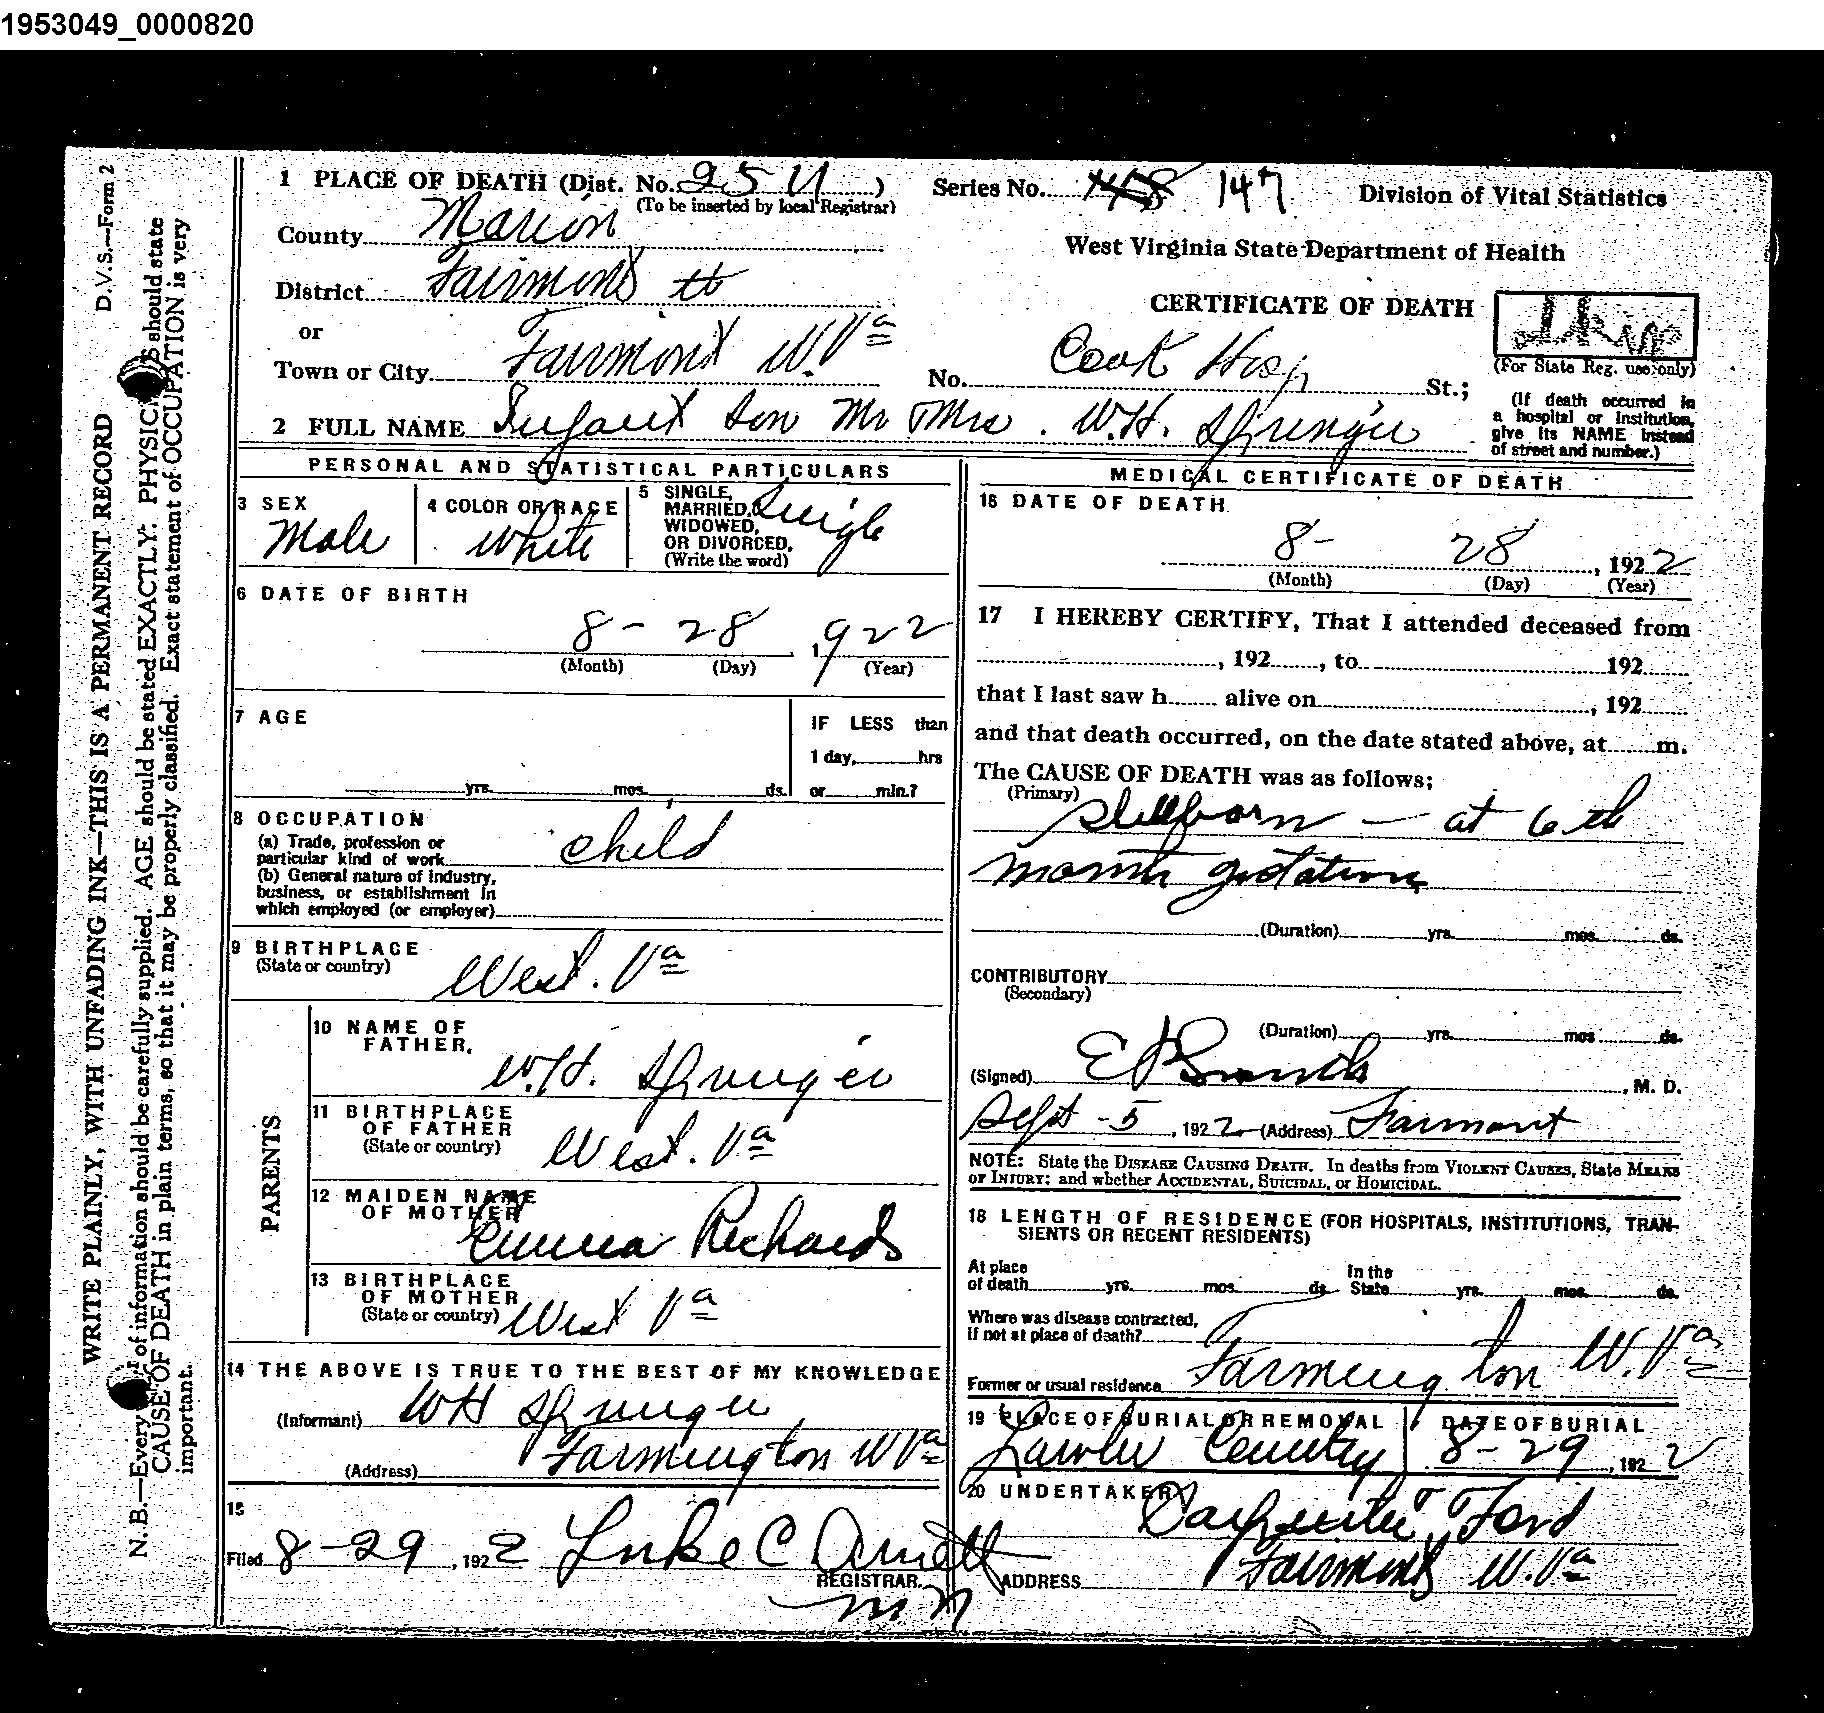 1953049_0000820
D.V.S.—Form 2
WRITE PLAINLY, WITH UNFADING INK—THIS IS A PERMANENT RECORD
N. B.—Every of information should be carefully supplied. AGE should be stated EXACTLY. PHYSIC should state
CAUSE OF DEATH in plain terms, so that it may be properly classified. Exact statement of OCCUPATION is very
important.
1 PLACE OF DEATH (Dist. No. )
(To be inserted by local Registrar)
Series No. 147
Division of Vital Statistics
County Marion
West Virginia State Department of Health
District Fairmont
CERTIFICATE OF DEATH
(For State Reg. use only)
or
Town or City Fairmont W.Va
No. Cook Hosp St.;
(If death occurred in
a hospital or institution,
give its NAME instead
of street and number.)
2 FULL NAME Infant Son Mr Mrs. W.H. Springer
PERSONAL AND STATISTICAL PARTICULARS
3 SEX
Male
4 COLOR OR RACE
White
5 SINGLE,
MARRIED,
WIDOWED,
OR DIVORCED,
(Write the word)
Single
6 DATE OF BIRTH
8 - 28 1922
(Month) (Day) (Year)
7 AGE
yrs. mos. ds.
IF LESS than
1 day, hrs
or min.?
8 OCCUPATION
(a) Trade, profession or
particular kind of work child
(b) General nature of industry,
business, or establishment in
which employed (or employer)
9 BIRTHPLACE
(State or country) West. Va
PARENTS
10 NAME OF
FATHER,
W.H. Springer
11 BIRTHPLACE
OF FATHER
(State or country) West. Va
12 MAIDEN NAME
OF MOTHER
Emma Richards
13 BIRTHPLACE
OF MOTHER
(State or country) West Va
14 THE ABOVE IS TRUE TO THE BEST OF MY KNOWLEDGE
(Informant) WH Springer
(Address) Farmington W Va
15
Filed 8-29, 1922 Luke C Arnett
REGISTRAR.
MEDICAL CERTIFICATE OF DEATH
16 DATE OF DEATH
8- 28, 1922
(Month) (Day) (Year)
17 I HEREBY CERTIFY, That I attended deceased from
, 192 , to 192
that I last saw h alive on , 192
and that death occurred, on the date stated above, at m.
The CAUSE OF DEATH was as follows;
(Primary)
Stillborn — at 6th
month gestation
(Duration) yrs. mos. ds.
CONTRIBUTORY
(Secondary)
(Duration) yrs. mos ds.
(Signed) , M. D.
Sept - 5, 1922 (Address) Fairmont
NOTE: State the DISEASE CAUSING DEATH. In deaths from VIOLENT CAUSES, State MEANS
OR INJURY; and whether ACCIDENTAL, SUICIDAL, or HOMICIDAL.
18 LENGTH OF RESIDENCE (FOR HOSPITALS, INSTITUTIONS, TRAN-
SIENTS OR RECENT RESIDENTS)
At place
of death yrs. mos. ds. In the
State yrs. mos. ds.
Where was disease contracted,
if not at place of death?
Former or usual residence Farmington W.Va
19 PLACE OF BURIAL OR REMOVAL
DATE OF BURIAL
8-29, 1922
20 UNDERTAKER
Ford
ADDRESS Fairmont W.Va